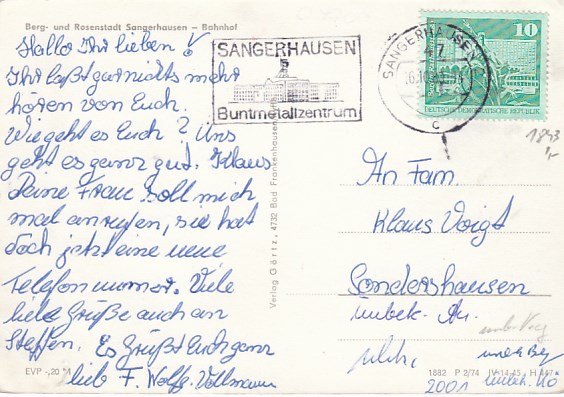 Berg- und Rosenstadt Sangerhausen – Bahnhof
Hallo Ihr lieben!
Ihr laßt gar nichts mehr
hören von Euch.
Wie geht es Euch? Uns
geht es ganz gut. Klaus
Deine Frau soll mich
mal anrufen, sie hat
doch jetzt eine neue
Telefonnummer. Viele
liebe Grüße auch an
Steffen. Es Grüßt Euch ganz
lieb F. Wolfg. Vollmann
EVP -,20 M
SANGERHAUSEN
Buntmetallzentrum
SANGERHAUSEN
47
c
10
DEUTSCHE DEMOKRATISCHE REPUBLIK
1843
Verlag Görtz, 4732 Bad Frankenhausen
An Fam.
Klaus Voigt
Sondershausen
unbek.
1882 P 2/74 IV-14-45 H 447
2001 unbek.